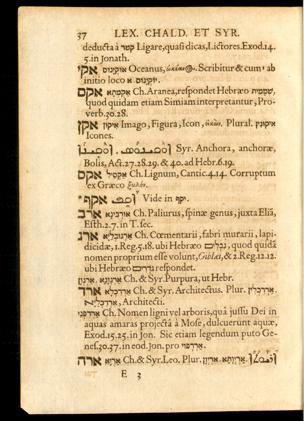 37 LEX. CHALD. ET SYR.
deducta à קטר Ligare, quasi dicas, Lictores. Exod. 14.
5. in Jonath.
אקי אוקינוס Oceanus, Scribitur & cum ab
initio loco א
אקם Ch. Aranea, respondet Hebræo
quod quidam etiam Simiam interpretantur, Pro-
verb. 30. 28.
אקן איקון Imago, Figura, Icon, Plural. איקונין
Icones.
Syr. Anchora, anchoræ,
Bolis, Act. 27. 28. 29. & 40. ad Hebr. 6. 19.
אקס Ch. Lignum, Cantic. 4. 14. Corruptum
ex Græco ξυλόν.
אקף Vide in יקף.
ארב Ch. Paliurus, spinæ genus, juxta Eliā,
Esth. 2. 7. in T. sec.
ארג Ch. Cœmentarii, fabri murarii, lapi-
dicidæ, 1. Reg. 5. 18. ubi Hebræo quod quidā
nomen proprium esse volunt, Giblæi, & 2. Reg. 12. 12.
ubi Hebræo גודרים respondet.
ארגוון Ch. & Syr. Purpura, ut Hebr.
ארד Ch. & Syr. Architectus. Plur.
Architecti.
Ch. Nomen ligni vel arboris, quâ jussu Dei in
aquas amaras projectâ à Mose, dulcuerunt aquæ,
Exod. 15. 25. in Jon. Sic etiam legendum puto Ge-
nes. 30. 37. in eod. Jon. pro
ארה אריא Ch. & Syr. Leo. Plur.
E 3